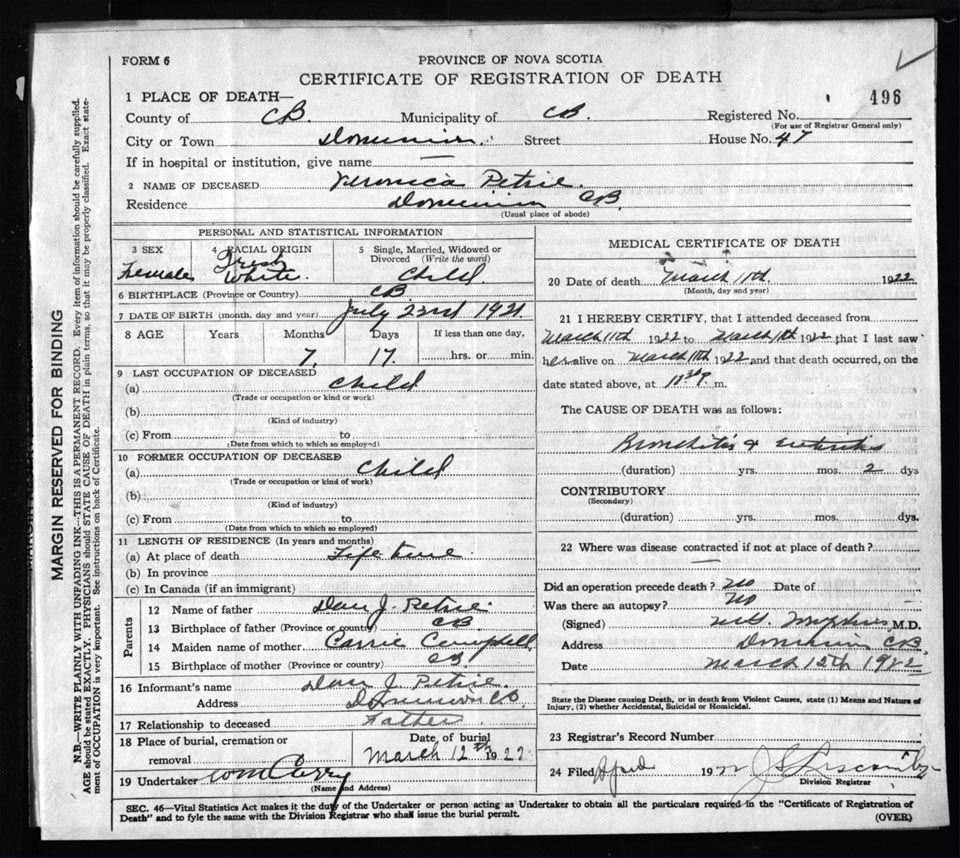 FORM 6
PROVINCE OF NOVA SCOTIA
CERTIFICATE OF REGISTRATION OF DEATH
496
1 PLACE OF DEATH—
County of CB. Municipality of CB. Registered No.
(For use of Registrar General only)
City or Town Dominion. Street House No. 47
If in hospital or institution, give name —
2 NAME OF DECEASED Veronica Petrie.
Residence Dominion CB.
(Usual place of abode)
PERSONAL AND STATISTICAL INFORMATION
3 SEX Female
4 RACIAL ORIGIN Irish White.
5 Single, Married, Widowed or Divorced (Write the word) Child.
6 BIRTHPLACE (Province or Country) CB.
7 DATE OF BIRTH (month, day and year) July 23rd 1921.
8 AGE Years Months 7, Days 17. If less than one day, hrs. or min.
9 LAST OCCUPATION OF DECEASED
(a) Child
(Trade or occupation or kind or work)
(b)
(Kind of industry)
(c) From to
(Date from which to which so employed)
10 FORMER OCCUPATION OF DECEASED
(a) Child
(Trade or occupation or kind of work)
(b)
(Kind of industry)
(c) From to
(Date from which to which so employed)
11 LENGTH OF RESIDENCE (In years and months)
(a) At place of death Life time
(b) In province
(c) In Canada (if an immigrant)
Parents
12 Name of father Dan J. Petrie.
13 Birthplace of father (Province or country) CB.
14 Maiden name of mother Carrie Campbell
15 Birthplace of mother (Province or country) CB
16 Informant's name Dan J. Petrie.
Address Dominion C.B.
17 Relationship to deceased Father
18 Place of burial, cremation or removal
Date of burial March 12th 1922
19 Undertaker Wm Curry
(Name and Address)
MEDICAL CERTIFICATE OF DEATH
20 Date of death March 11th. 1922
(Month, day and year)
21 I HEREBY CERTIFY, that I attended deceased from
March 11th 1922 to March 11th 1922 that I last saw
her alive on March 11th 1922 and that death occurred, on the
date stated above, at 11 30 P. m.
The CAUSE OF DEATH was as follows:
Bronchitis & enteritis
(duration) yrs. mos. 2 dys
CONTRIBUTORY
(Secondary)
(duration) yrs. mos. dys.
22 Where was disease contracted if not at place of death?
—
Did an operation precede death? No Date of
Was there an autopsy? No
(Signed) M.D.
Address Dominion CB.
Date March 12th 1922
State the Disease causing Death, or in death from Violent Causes, state (1) Means and Nature of
Injury, (2) whether Accidental, Suicidal or Homicidal.
23 Registrar's Record Number
24 Filed April 1922
Division Registrar
SEC. 46—Vital Statistics Act makes it the duty of the Undertaker or person acting as Undertaker to obtain all the particulars required in the "Certificate of Registration of
Death" and to fyle the same with the Division Registrar who shall issue the burial permit. (OVER)
MARGIN RESERVED FOR BINDING
N.B.—WRITE PLAINLY WITH UNFADING INK—THIS IS A PERMANENT RECORD. Every item of information should be carefully supplied.
AGE should be stated EXACTLY. PHYSICIANS should STATE CAUSE OF DEATH in plain terms, so that it may be properly classified. Exact state-
ment of OCCUPATION is very important. See instructions on back of Certificate.